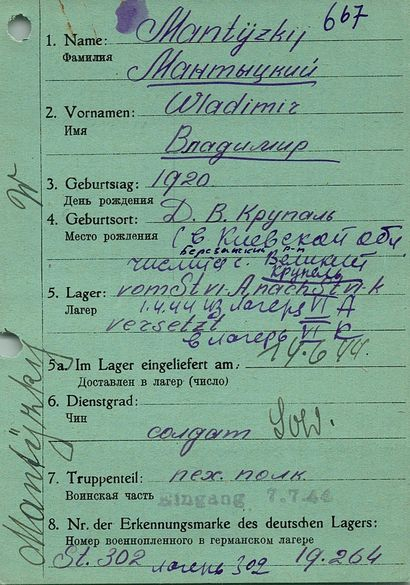 667
1. Name: Mantÿzkij
Фамилия
Мантыцкий
2. Vornamen: Wladimir
Имя
Владимир
3. Geburtstag: 1920
День рождения
4. Geburtsort: Д. В. Крупаль
Место рождения
(в Киевской обл
Березанский р-н
числица с. Великий
Крупель
5. Lager: vom St VI A nach St VI K
Лагер 1.4.44 из лагеря VI A
versetzt в лагерь VI K
5a. Im Lager eingeliefert am: 14.6.44.
Доставлен в лагер (число)
6. Dienstgrad:
Чин
солдат Sold.
7. Truppenteil: пех. полк
Воинская часть Eingang 7.7.44
8. Nr. der Erkennungsmarke des deutschen Lagers:
Номер военнопленного в германском лагере
St. 302 лагерь 302 19.264
Mantÿzky W